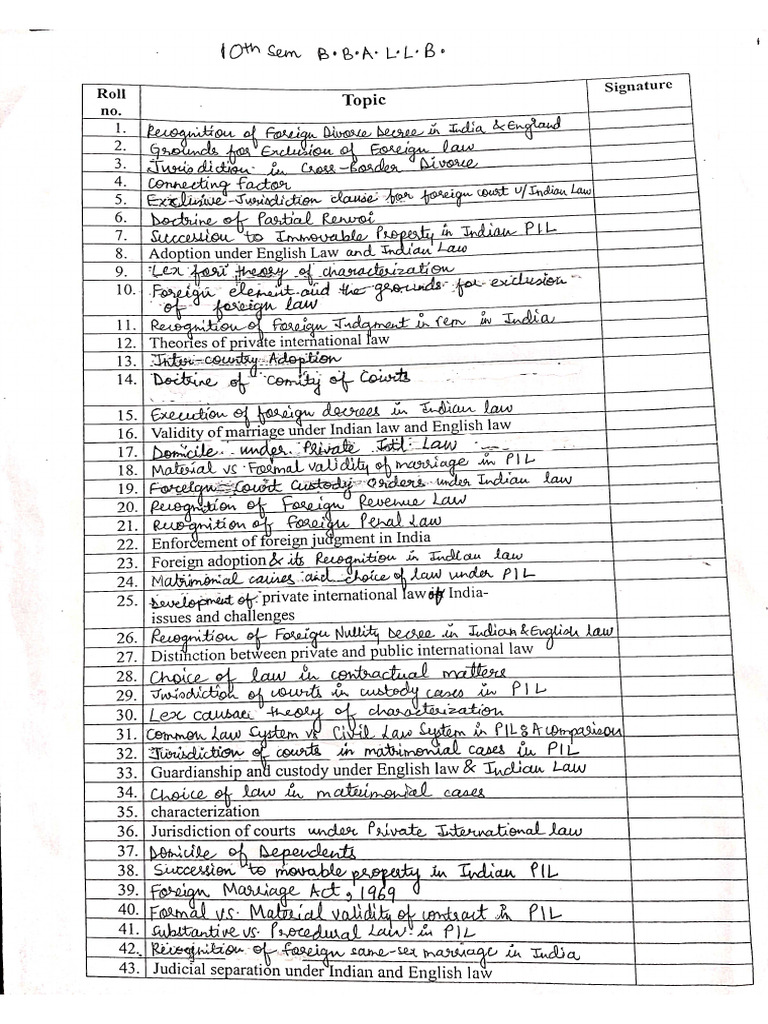 10th Sem B.B.A.L.L.B.
Roll no. Topic Signature
1. Recognition of Foreign Divorce Decree in India & England
2. Grounds for Exclusion of Foreign law
3. Jurisdiction in Cross-Border Divorce
4. Connecting Factor
5. Exclusive Jurisdiction clause for foreign court v/Indian Law
6. Doctrine of Partial Renvoi
7. Succession to Immovable Property in Indian PIL
8. Adoption under English Law and Indian Law
9. Lex fori theory of characterization
10. Foreign element and the grounds for exclusion
of foreign law
11. Recognition of Foreign Judgment in rem in India
12. Theories of private international law
13. Inter-country Adoption
14. Doctrine of Comity of Courts
15. Execution of foreign decrees in Indian law
16. Validity of marriage under Indian law and English law
17. Domicile under Private Intl. Law
18. Material vs. Formal validity of marriage in PIL
19. Foreign Court Custody Orders under Indian law
20. Recognition of Foreign Revenue Law
21. Recognition of Foreign Penal Law
22. Enforcement of foreign judgment in India
23. Foreign adoption & its Recognition in Indian law
24. Matrimonial causes and choice of law under PIL
25. Development of private international law of India-
issues and challenges
26. Recognition of Foreign Nullity Decree in Indian & English law
27. Distinction between private and public international law
28. Choice of law in contractual matters
29. Jurisdiction of courts in custody cases in PIL
30. Lex causae theory of characterization
31. Common Law System vs Civil Law System in PIL & A comparison
32. Jurisdiction of courts in matrimonial cases in PIL
33. Guardianship and custody under English law & Indian Law
34. Choice of law in matrimonial cases
35. characterization
36. Jurisdiction of courts under Private International law
37. Domicile of Dependents
38. Succession to movable property in Indian PIL
39. Foreign Marriage Act, 1969
40. Formal vs. Material validity of contract in PIL
41. Substantive vs. Procedural Law in PIL
42. Recognition of foreign same-sex marriage in India
43. Judicial separation under Indian and English law